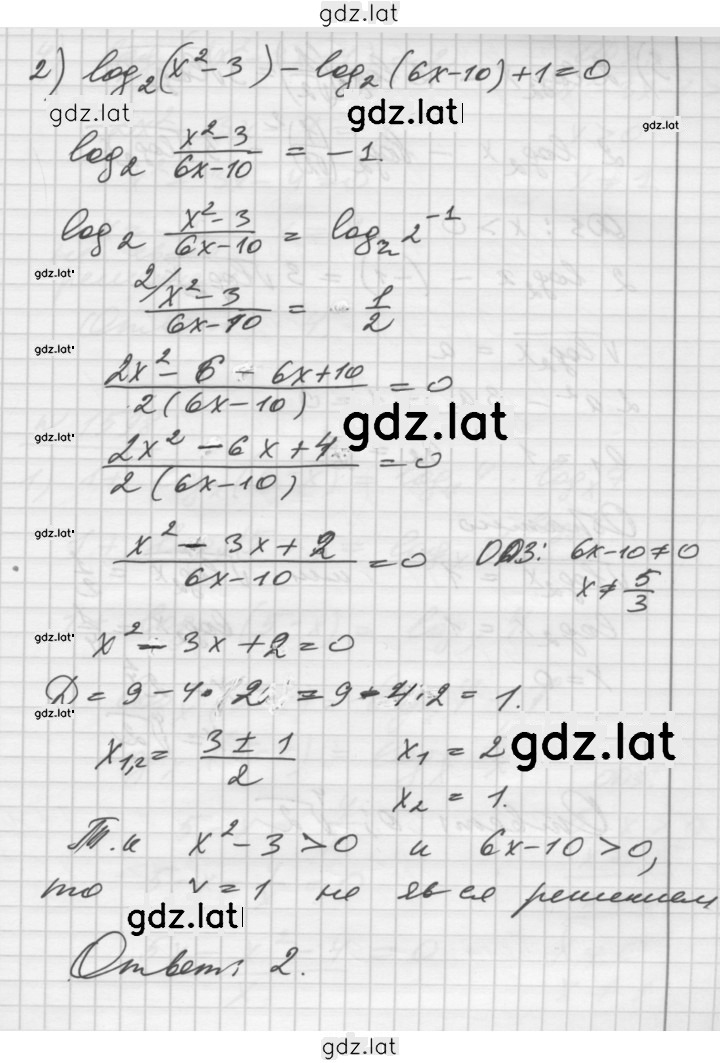 gdz.lat
2) log₂(x²-3) - log₂(6x-10)+1=0
gdz.lat gdz.lat gdz.lat
log₂ (x²-3)/(6x-10) = -1.
log₂ (x²-3)/(6x-10) = log₂ 2⁻¹
gdz.lat
2/ (x²-3)/(6x-10) = 1/2
gdz.lat
(2x²-6-6x+10)/(2(6x-10)) = 0
gdz.lat
gdz.lat
(2x²-6x+4)/(2(6x-10)) = 0
gdz.lat
(x²-3x+2)/(6x-10) = 0 ОДЗ: 6x-10≠0
x≠5/3
gdz.lat x²-3x+2=0
Д = 9-4·2 = 9-4·2 = 1.
gdz.lat
x₁,₂ = (3±1)/2 x₁ = 2 gdz.lat
x₂ = 1.
Т.к x²-3>0 и 6x-10>0,
то x=1 не явся решением
gdz.lat
Ответ: 2.
gdz.lat